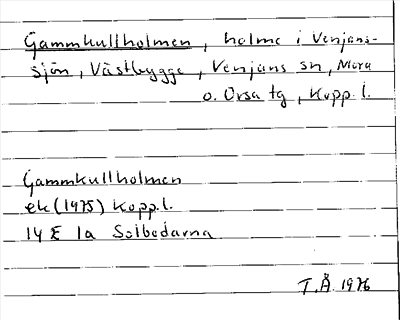 Gammkullholmen, holme i Venjans-
sjön, Västbygge, Venjans sn, Mora
o. Orsa tg, Kopp. l.
Gammkullholmen
ek (1975) Kopp. l.
14 E 1a Solbodarna
T.Å. 1976